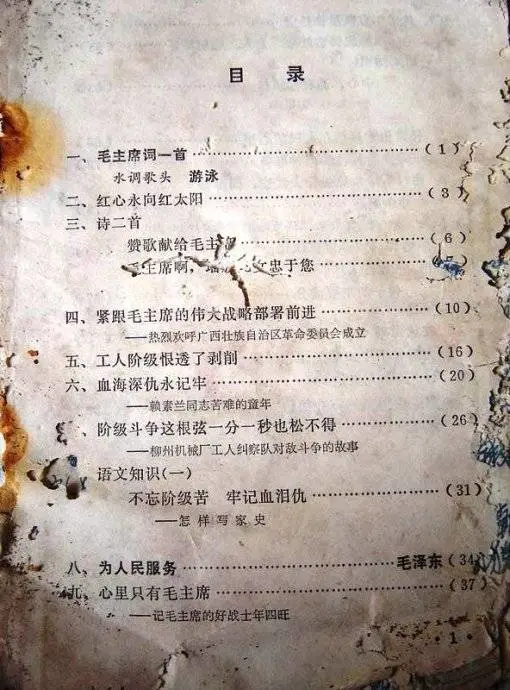 目 录
一、毛主席词一首……………………(1)
水调歌头 游泳
二、红心永向红太阳……………………(3)
三、诗二首
赞歌献给毛主……………………(6)
主席啊, 忠于您
四、紧跟毛主席的伟大战略部署前进……………(10)
——热烈欢呼广西壮族自治区革命委员会成立
五、工人阶级恨透了剥削……………………(16)
六、血海深仇永记牢……………………(20)
——赖素兰同志苦难的童年
、阶级斗争这根弦一分一秒也松不得……………(26)
——柳州机械厂工人纠察队对敌斗争的故事
语文知识(一)
不忘阶级苦 牢记血泪仇……………………(31)
——怎样写家史
八、为人民服务……………………毛泽东(34)
九、心里只有毛主席……………………(37)
——记毛主席的好战士年四旺
·1·